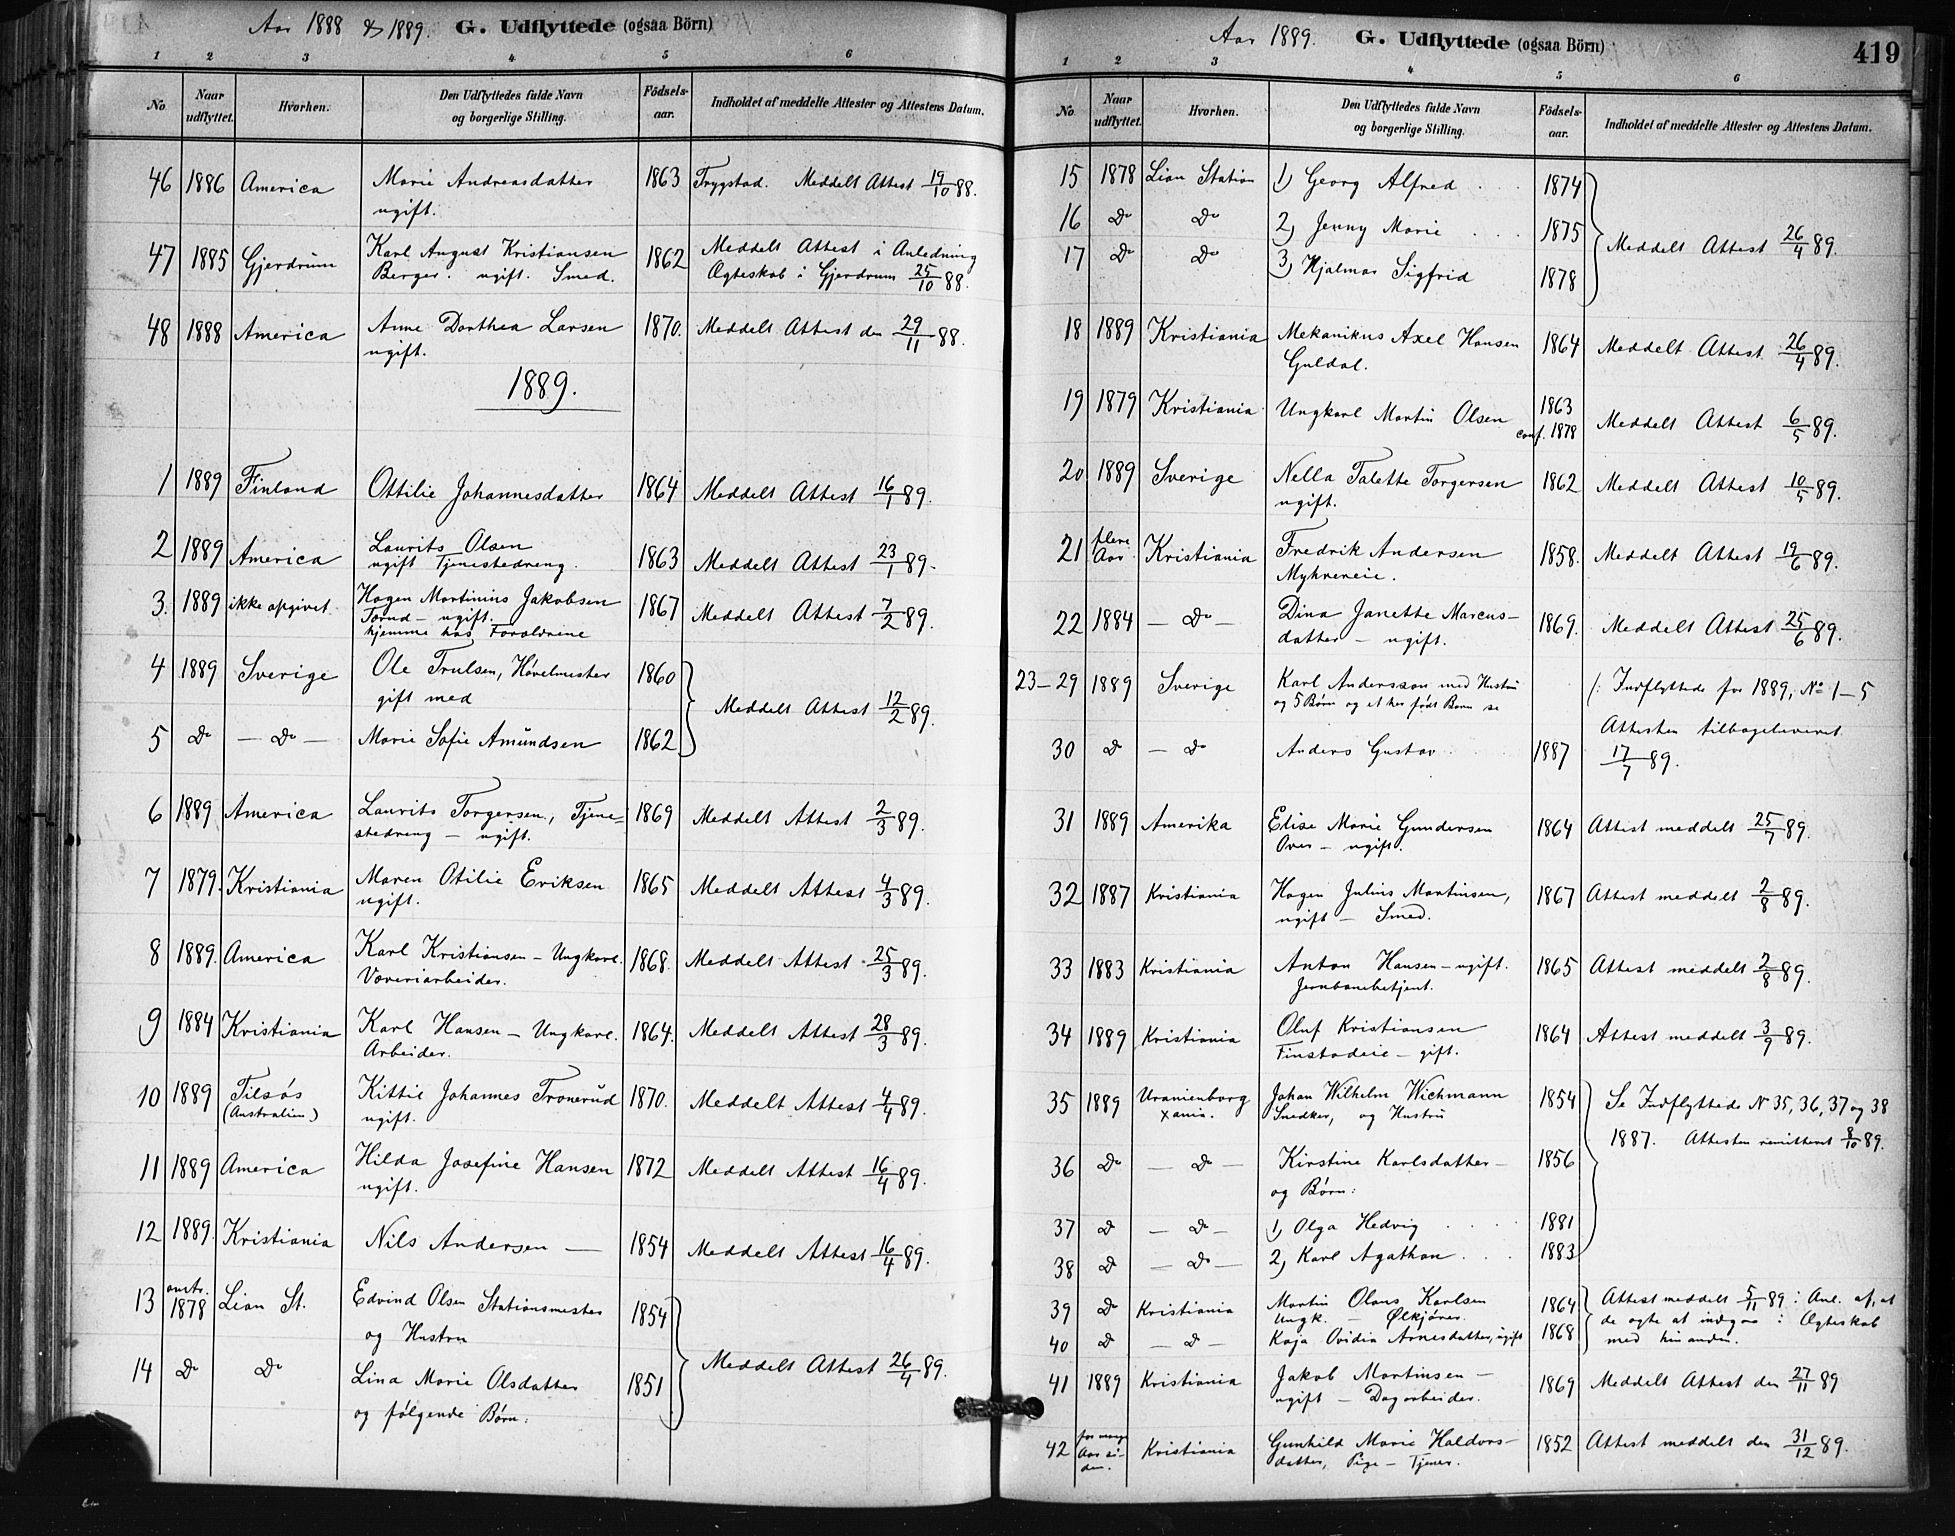 Aar 1888 & 1889. G. Udflyttede (ogsaa Börn)
1 2 3 4 5 6
No Naar udflyttet. Hvorhen. Den Udflyttedes fulde Navn og borgerlige Stilling. Födsels-aar. Indholdet af meddelte Attester og Attestens Datum.
46 1886 America Marie Andreasdatter 1863 Trygstad. Meddelt Attest 19/10 88.
ugift.
47 1885 Gjerdrum Karl August Kristiansen 1862 Meddelt Attest i Anledning
Berger. ugift. Smed. Ægteskab i Gjerdrum 25/10 88.
48 1888 America Anne Dorthea Larsen 1870. Meddelt Attest den 29/11 88.
ugift.
1889.
1 1889 Finland Ottilie Johannesdatter 1864 Meddelt Attest 16/1 89.
2 1889 America Laurits Olsen 1863 Meddelt Attest 23/1 89.
ugift Tjenestedreng.
3. 1889 ikke opgivet. Hagen Martinius Jakobsen 1867 Meddelt Attest 7/2 89.
Torud – ugift.
hjemme hos Forældrene
4 1889 Sverige Ole Trulsen, Høvelmester 1860
gift med Meddelt Attest 12/2 89.
5 Do – Do – Marie Sofie Amundsen 1862
6 1889 America Laurits Torgersen, Tjene= 1869 Meddelt Attest 2/3 89.
stedreng – ugift.
7 1879. Kristiania Maren Otilie Eriksen 1865 Meddelt Attest 4/3 89.
ugift.
8 1889. America Karl Kristiansen – Ungkarl. 1868. Meddelt Attest 25/3 89.
Væveriarbeider.
9 1884 Kristiania Karl Hansen – Ungkarl. 1864. Meddelt Attest 28/3 89.
Arbeider.
10 1889 Tilsøs Kittil Johannes Tronerud 1870. Meddelt Attest 4/4 89.
(Australien) ugift.
11 1889 America Hilda Josefine Hansen 1872 Meddelt Attest 16/4 89.
ugift.
12 1889. Kristiania Nils Andersen — 1854 Meddelt Attest 16/4 89.
13 1878 Lian St. Edvind Olsen Stationsmester 1854
og Hustru
14 Do Do Lina Marie Olsdatter 1851 Meddelt Attest 26/4 89.
og følgende Börn:
Aar 1889. G. Udflyttede (ogsaa Börn) 419
1 2 3 4 5 6
No Naar udflyttet. Hvorhen. Den Udflyttedes fulde Navn og borgerlige Stilling. Födsels-aar. Indholdet af meddelte Attester og Attestens Datum.
15 1878 Lian Station 1) Georg Alfred . . . 1874
16 Do Do 2) Jenny Marie . . . 1875 Meddelt Attest 26/4 89.
17 Do Do 3) Hjalmar Sigfrid 1878
18 1889 Kristiania Mekanikus Axel Hansen 1864 Meddelt Attest 26/4 89.
Guldal.
19 1879 Kristiania Ungkarl Martin Olsen 1863 Meddelt Attest 6/5 89.
conf. 1878
20 1889 Sverige Nella Talette Torgersen 1862 Meddelt Attest 10/5 89.
ugift.
21 flere Aar. Kristiania Fredrik Andersen 1858. Meddelt Attest 19/6 89.
Myhrereie.
22 1884 – Do – Dina Janette Marcus- 1869. Meddelt Attest 25/6 89.
datter – ugift.
23–29 1889 Sverige Karl Andersson med Hustru /: Indflyttede for 1889, No 1–5
og 5 Børn og et her født Barn se
Attesten tilbageleveret
30 Do – Do Anders Gustav . 1887 17/7 89.
31 1889 Amerika Elise Marie Gundersen 1864 Attest meddelt 25/7 89.
– ugift.
32 1887 Kristiania Hagen Julius Martinsen, 1867 Attest meddelt 2/8 89.
ugift – Smed.
33 1883 Kristiania Anton Hansen – ugift. 1865 Attest meddelt 2/8 89.
Jernbanebetjent.
34 1889 Kristiania Oluf Kristiansen 1864 Attest meddelt 3/9 89.
Finstadeie – gift.
35 1889 Uranienborg Johan Wilhelm Wichmann 1854 Se Indflyttede N 35, 36, 37 og 38
Xania. Snedker, og Hustru
1887. Attesten remitteret 8/10 89.
36 Do – Do – Kirstine Karlsdatter – 1856
og Børn:
37 Do – Do – 1) Olga Hedvig . . . . 1881
38 Do – Do – 2) Karl Agathon . . . 1883
39 Do Kristiania Martin Olaus Karlsen 1864 Attest meddelt 5/11 89 i Anl. af, at
Ungk. – Ølkjører. de agte at indgaa i Ægteskab
40 Do – Do – Kaja Ovidia Arnesdatter, ugift 1868 med hinanden.
41 1889 Kristiania Jakob Martinsen – 1869 Meddelt Attest den 27/11 89
ugift – Dagarbeider.
42 for mange Aar siden. Kristiania Gunhild Marie Haldors- 1852 Attest meddelt den 31/12 89.
datter, Pige – Tjener.